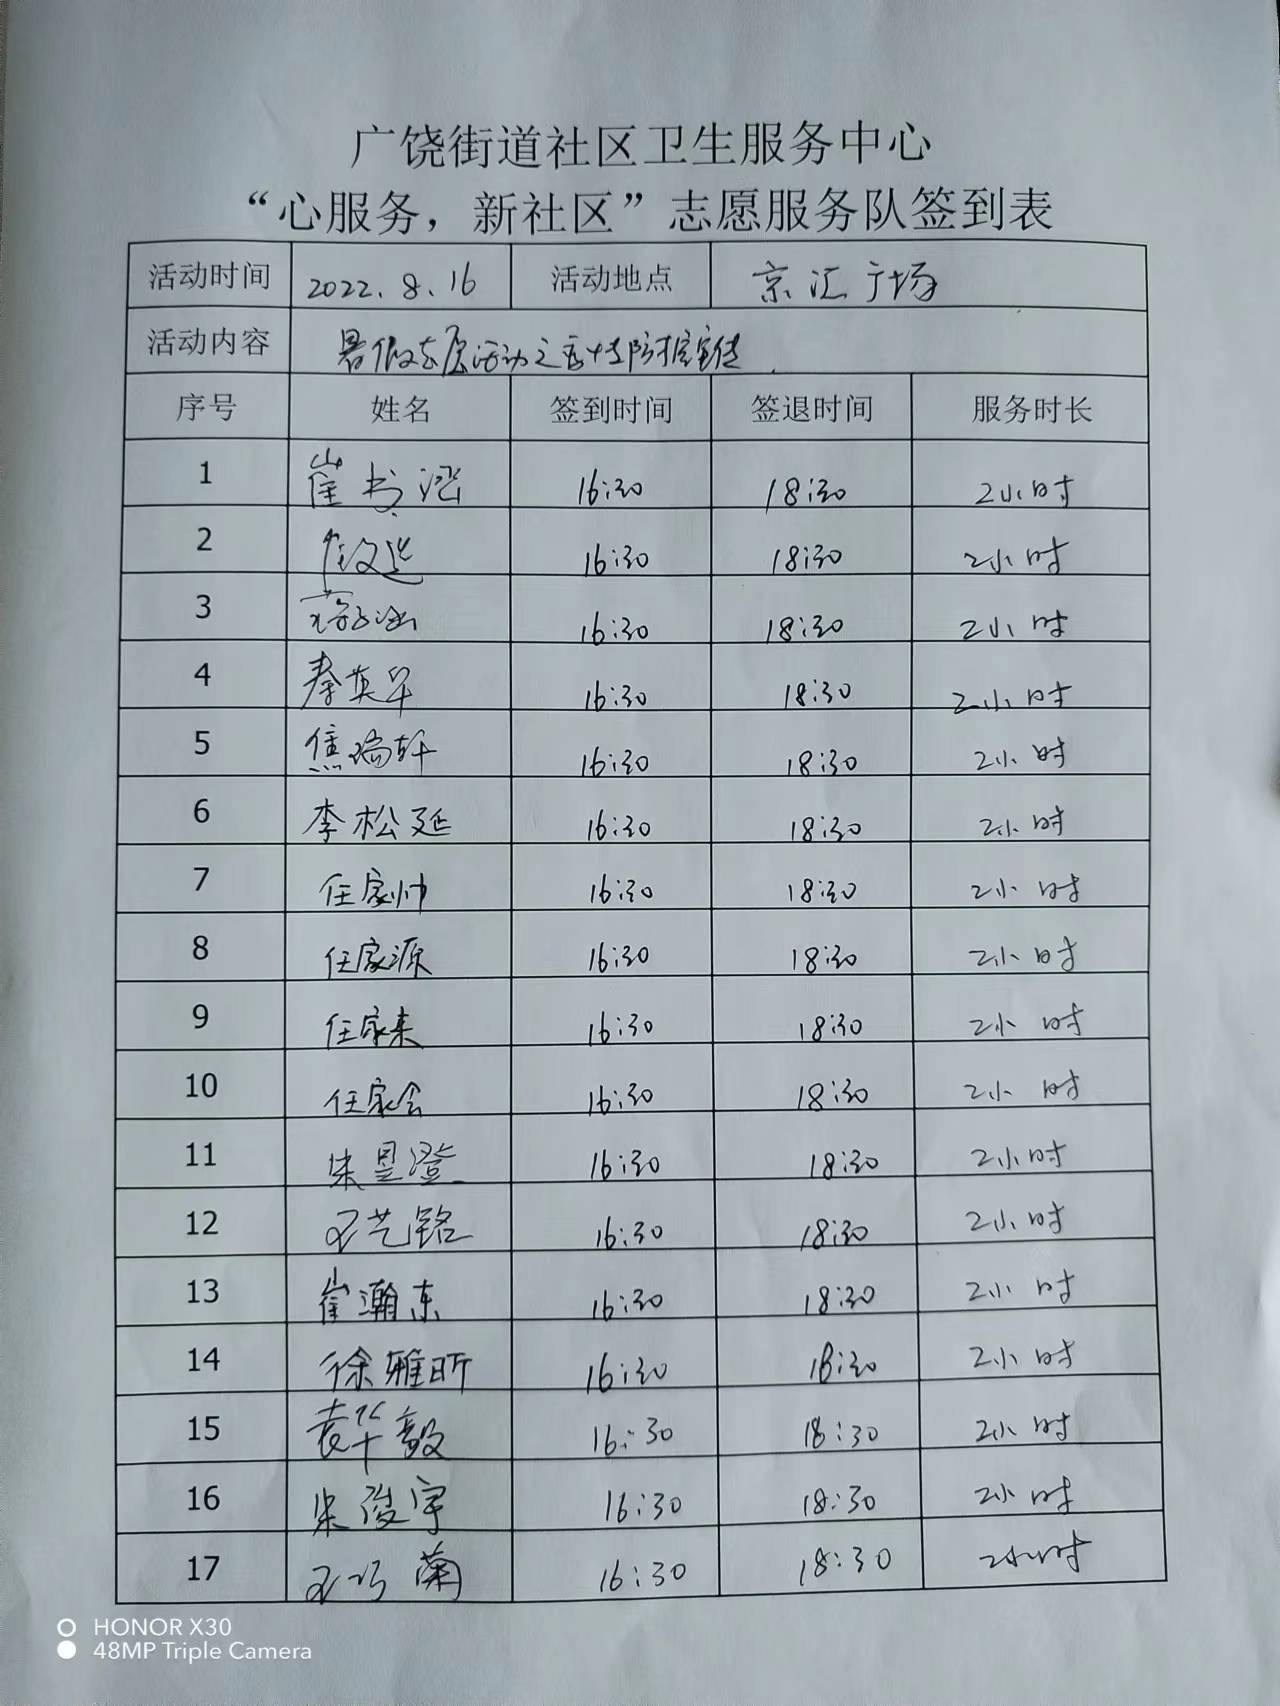 广饶街道社区卫生服务中心
“心服务，新社区”志愿服务队签到表
活动时间 2022.8.16 活动地点 京汇广场
活动内容 暑假志愿活动之 防护宣传
序号 姓名 签到时间 签退时间 服务时长
1 崔书 16:30 18:30 2小时
2 16:30 18:30 2小时
3 蒋 16:30 18:30 2小时
4 秦英华 16:30 18:30 2小时
5 焦瑞轩 16:30 18:30 2小时
6 李松延 16:30 18:30 2小时
7 任家帅 16:30 18:30 2小时
8 任家源 16:30 18:30 2小时
9 任家来 16:30 18:30 2小时
10 任家会 16:30 18:30 2小时
11 朱昱澄 16:30 18:30 2小时
12 王艺铭 16:30 18:30 2小时
13 崔瀚东 16:30 18:30 2小时
14 徐雅昕 16:30 18:30 2小时
15 袁华毅 16:30 18:30 2小时
16 朱俊宇 16:30 18:30 2小时
17 王巧菊 16:30 18:30 2小时
HONOR X30
48MP Triple Camera